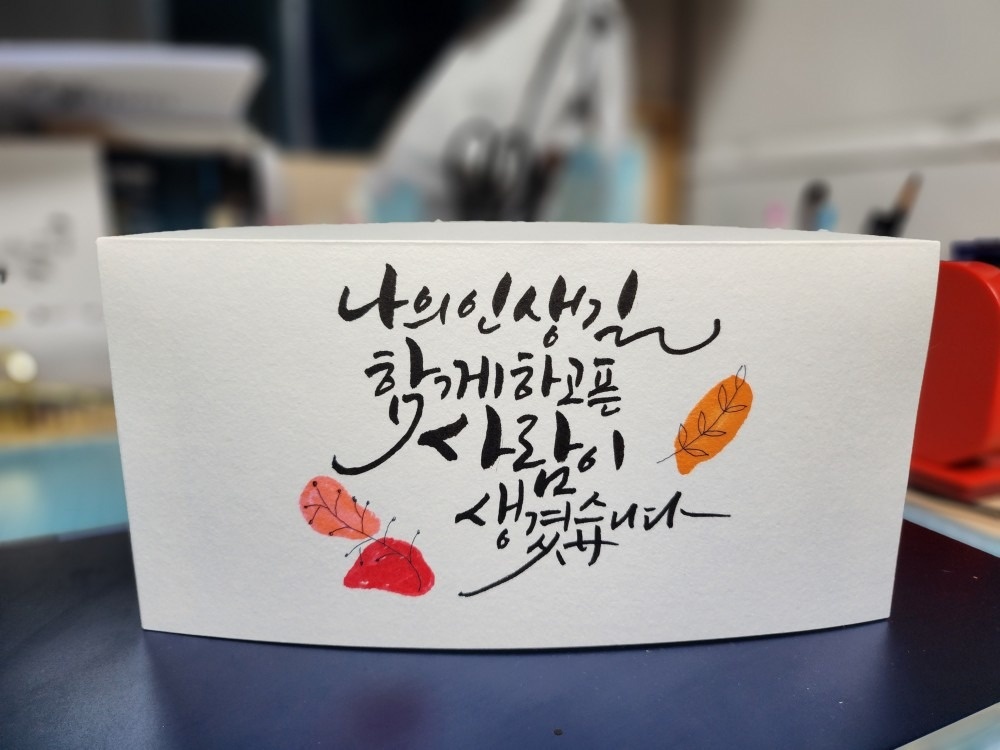 나의 인생길
함께하고픈
사람이
생겼습니다